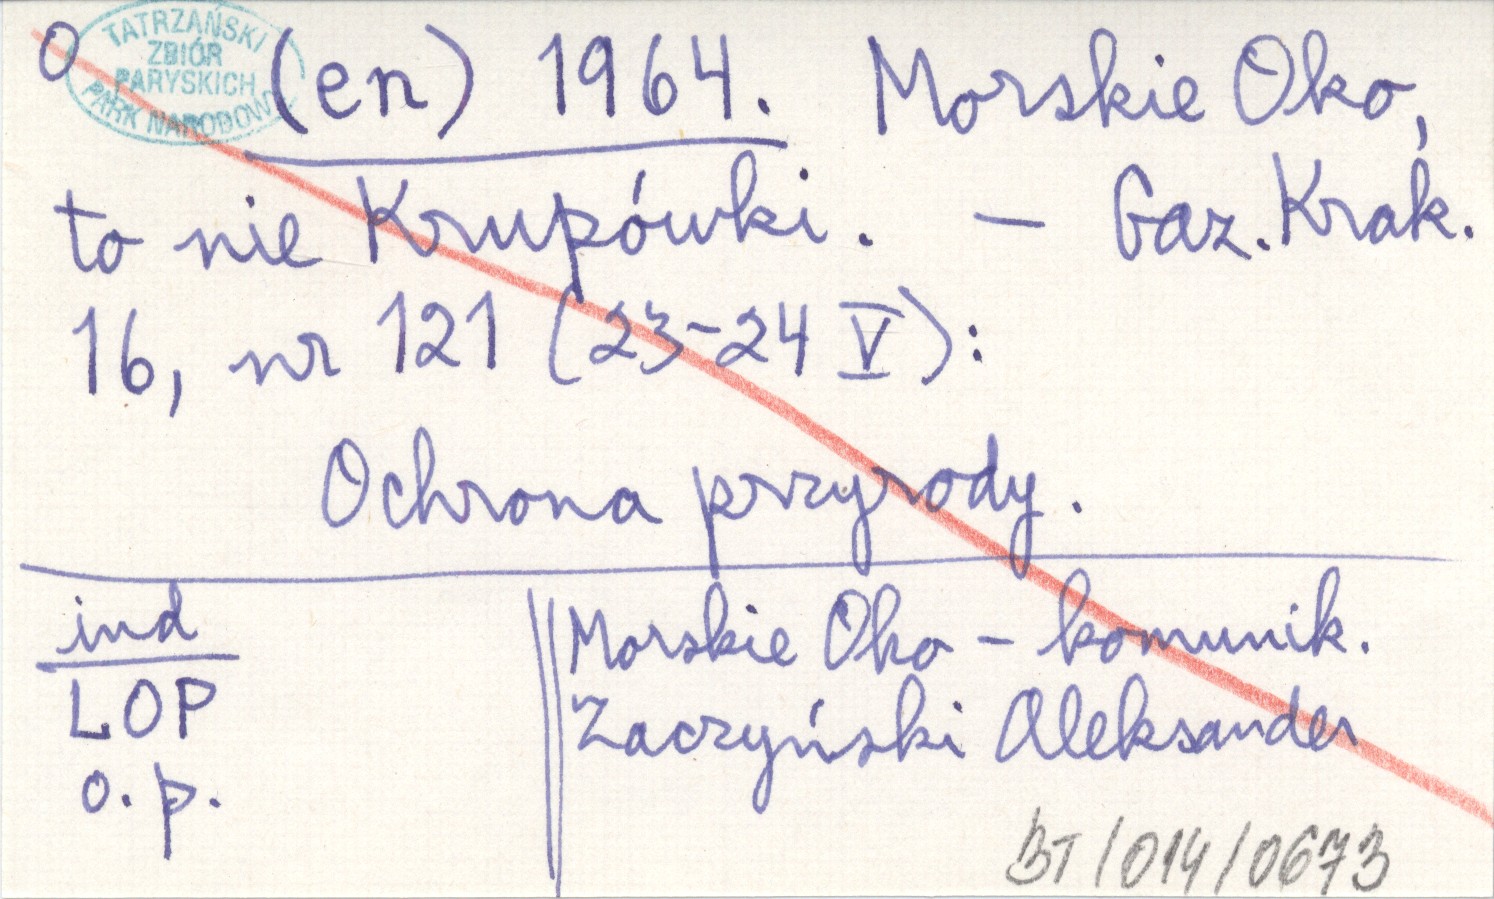 O
TATRZAŃSKI
ZBIÓR
PARYSKICH
PARK NARODOWY
(en) 1964. Morskie Oko,
to nie Krupówki. — Gaz. Krak.
16, nr 121 (23-24 V):
Ochrona przyrody.
ind
LOP
o. p.
Morskie Oko - komunik.
Zaczyński Aleksander
BT/014/0673